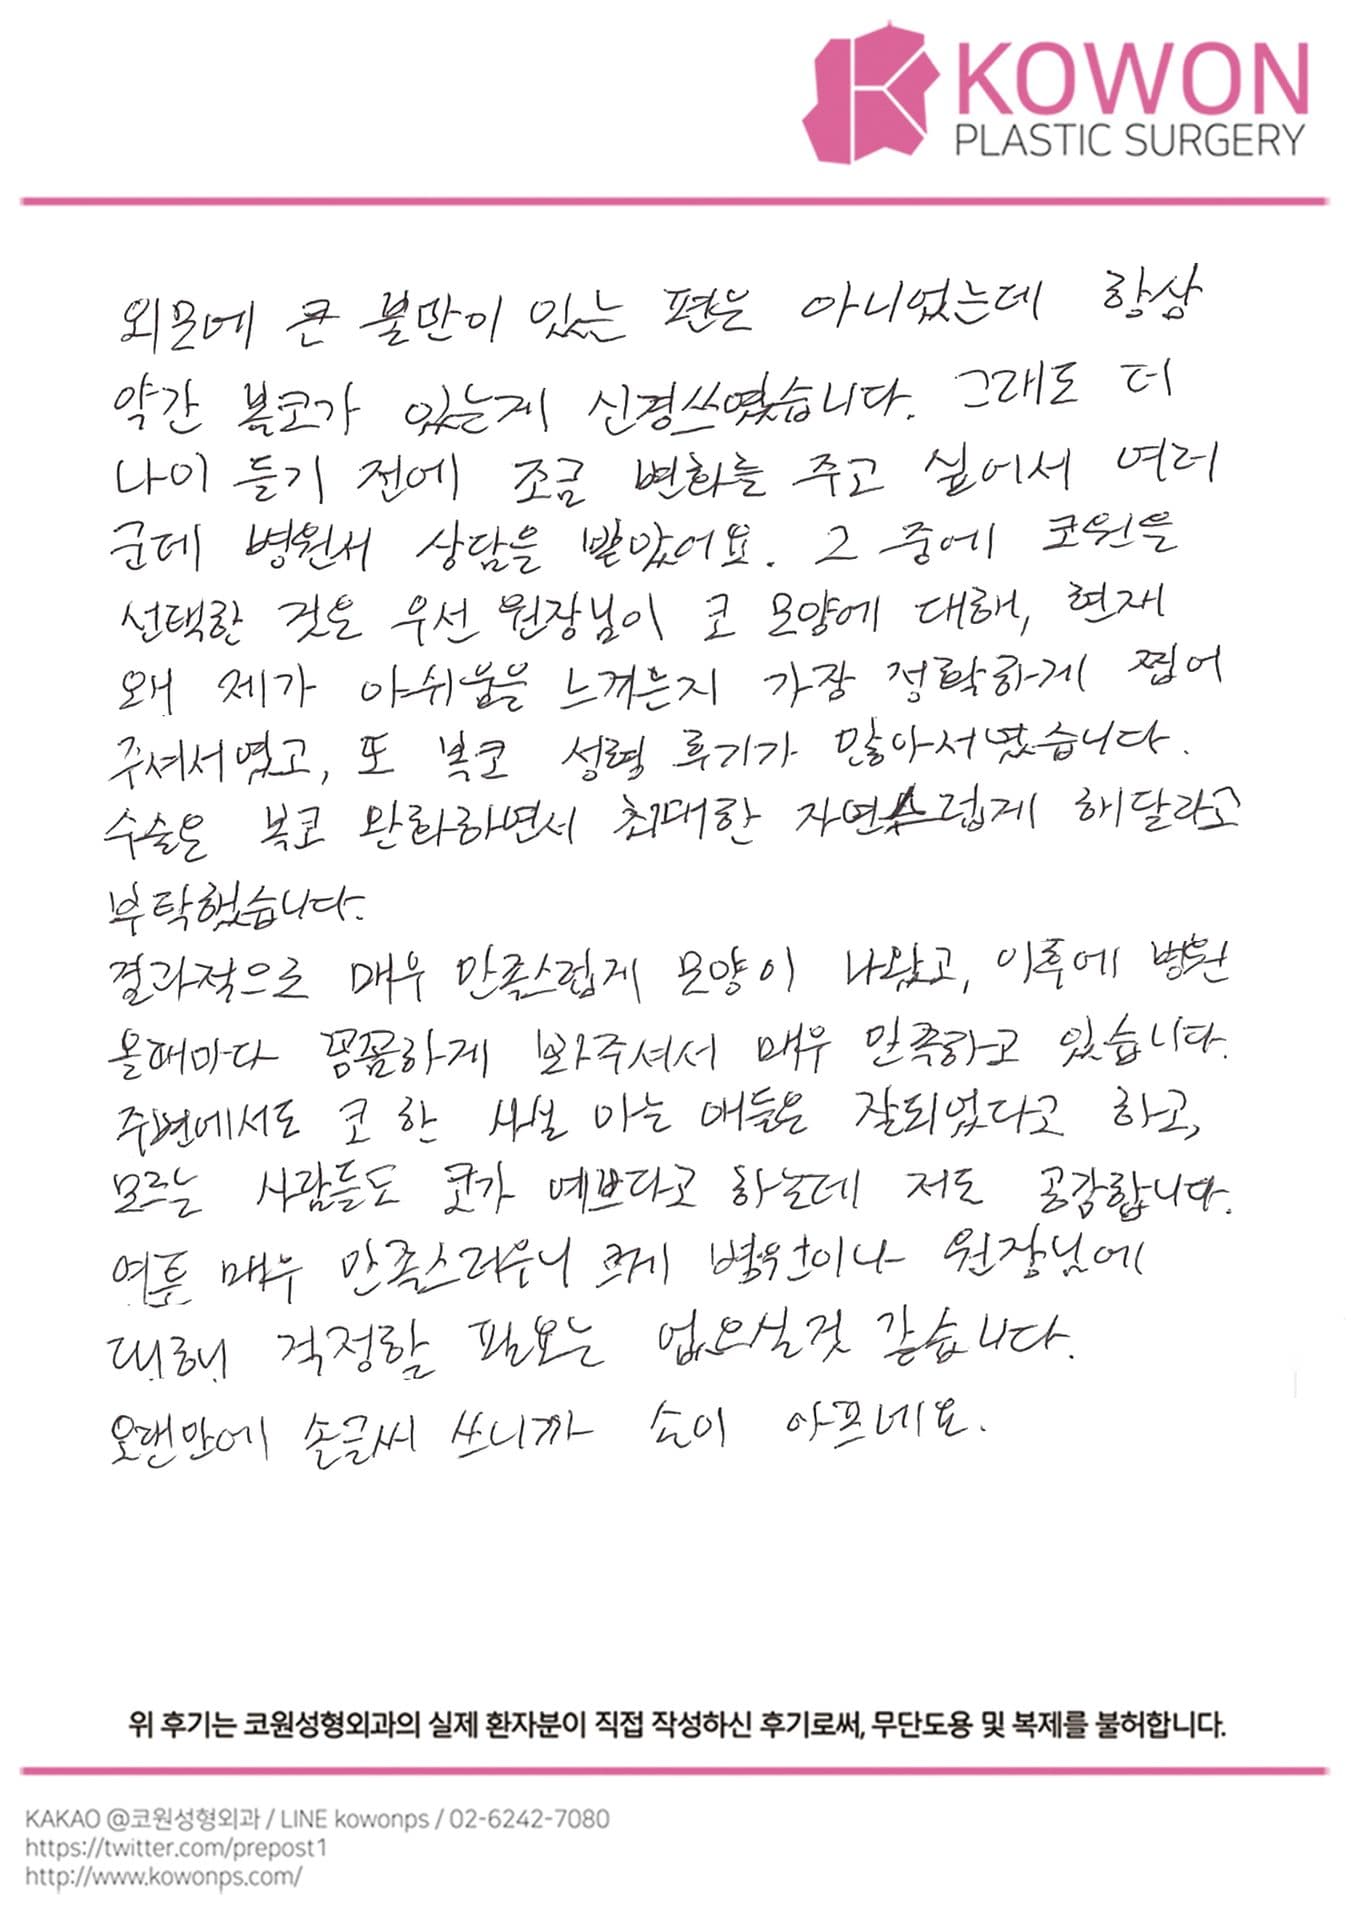 KOWON
PLASTIC SURGERY
외모에 큰 불만이 있는 편은 아니었는데 항상
약간 복코가 있는게 신경쓰였습니다. 그래도 더
나이 들기 전에 조금 변화를 주고 싶어서 여러
군데 병원서 상담을 받았어요. 그 중에 코원을
선택한 것은 우선 원장님이 코 모양에 대해, 현재
왜 제가 아쉬움을 느끼는지 가장 정확하게 찝어
주셔서였고, 또 복코 성형 후기가 많아서였습니다.
수술은 복코 완화하면서 최대한 자연스럽게 해달라고
부탁했습니다.
결과적으로 매우 만족스럽게 모양이 나왔고, 이후에 병원
올때마다 꼼꼼하게 봐주셔서 매우 만족하고 있습니다.
주변에서도 코 한 사실 아는 애들은 잘되었다고 하고,
모르는 사람들도 코가 예쁘다고 하는데 저도 공감합니다.
여튼 매우 만족스러우니 크게 병원이나 원장님에
대해 걱정할 필요는 없으실것 같습니다.
오랜만에 손글씨 쓰니까 손이 아프네요.
위 후기는 코원성형외과의 실제 환자분이 직접 작성하신 후기로써, 무단도용 및 복제를 불허합니다.
KAKAO @코원성형외과 / LINE kowonps / 02-6242-7080
https://twitter.com/prepost1
http://www.kowonps.com/